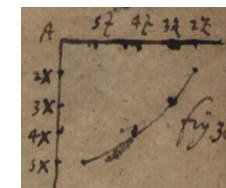 A 5Z 4Z 3Z 2Z
2X
3X
4X fig 3
5X